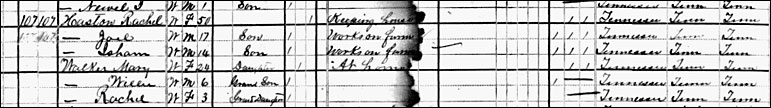 — Newel I W M 1 Son Tennessee Tenn Tenn
107 107 Haston Rachel W F 50 1 Keeping house 1 1 Tennessee Tenn Tenn
— Joe W M 17 Son 1 Works on farm 1 1 1 Tennessee Tenn Tenn
— Isham W M 14 Son 1 Works on farm 1 1 1 Tennessee Tenn Tenn
Walker Mary W F 24 Daughter At home 1 1 Tennessee Tenn Tenn
— W M 6 Grand Son 1 Tennessee Tenn Tenn
— Rachel W F 3 Grand Daughter 1 Tennessee Tenn Tenn